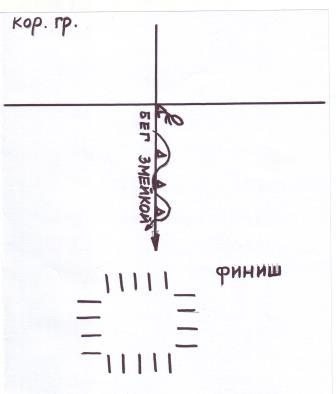 кор. гр.
БЕГ ЗМЕЙКОЙ
ФИНИШ